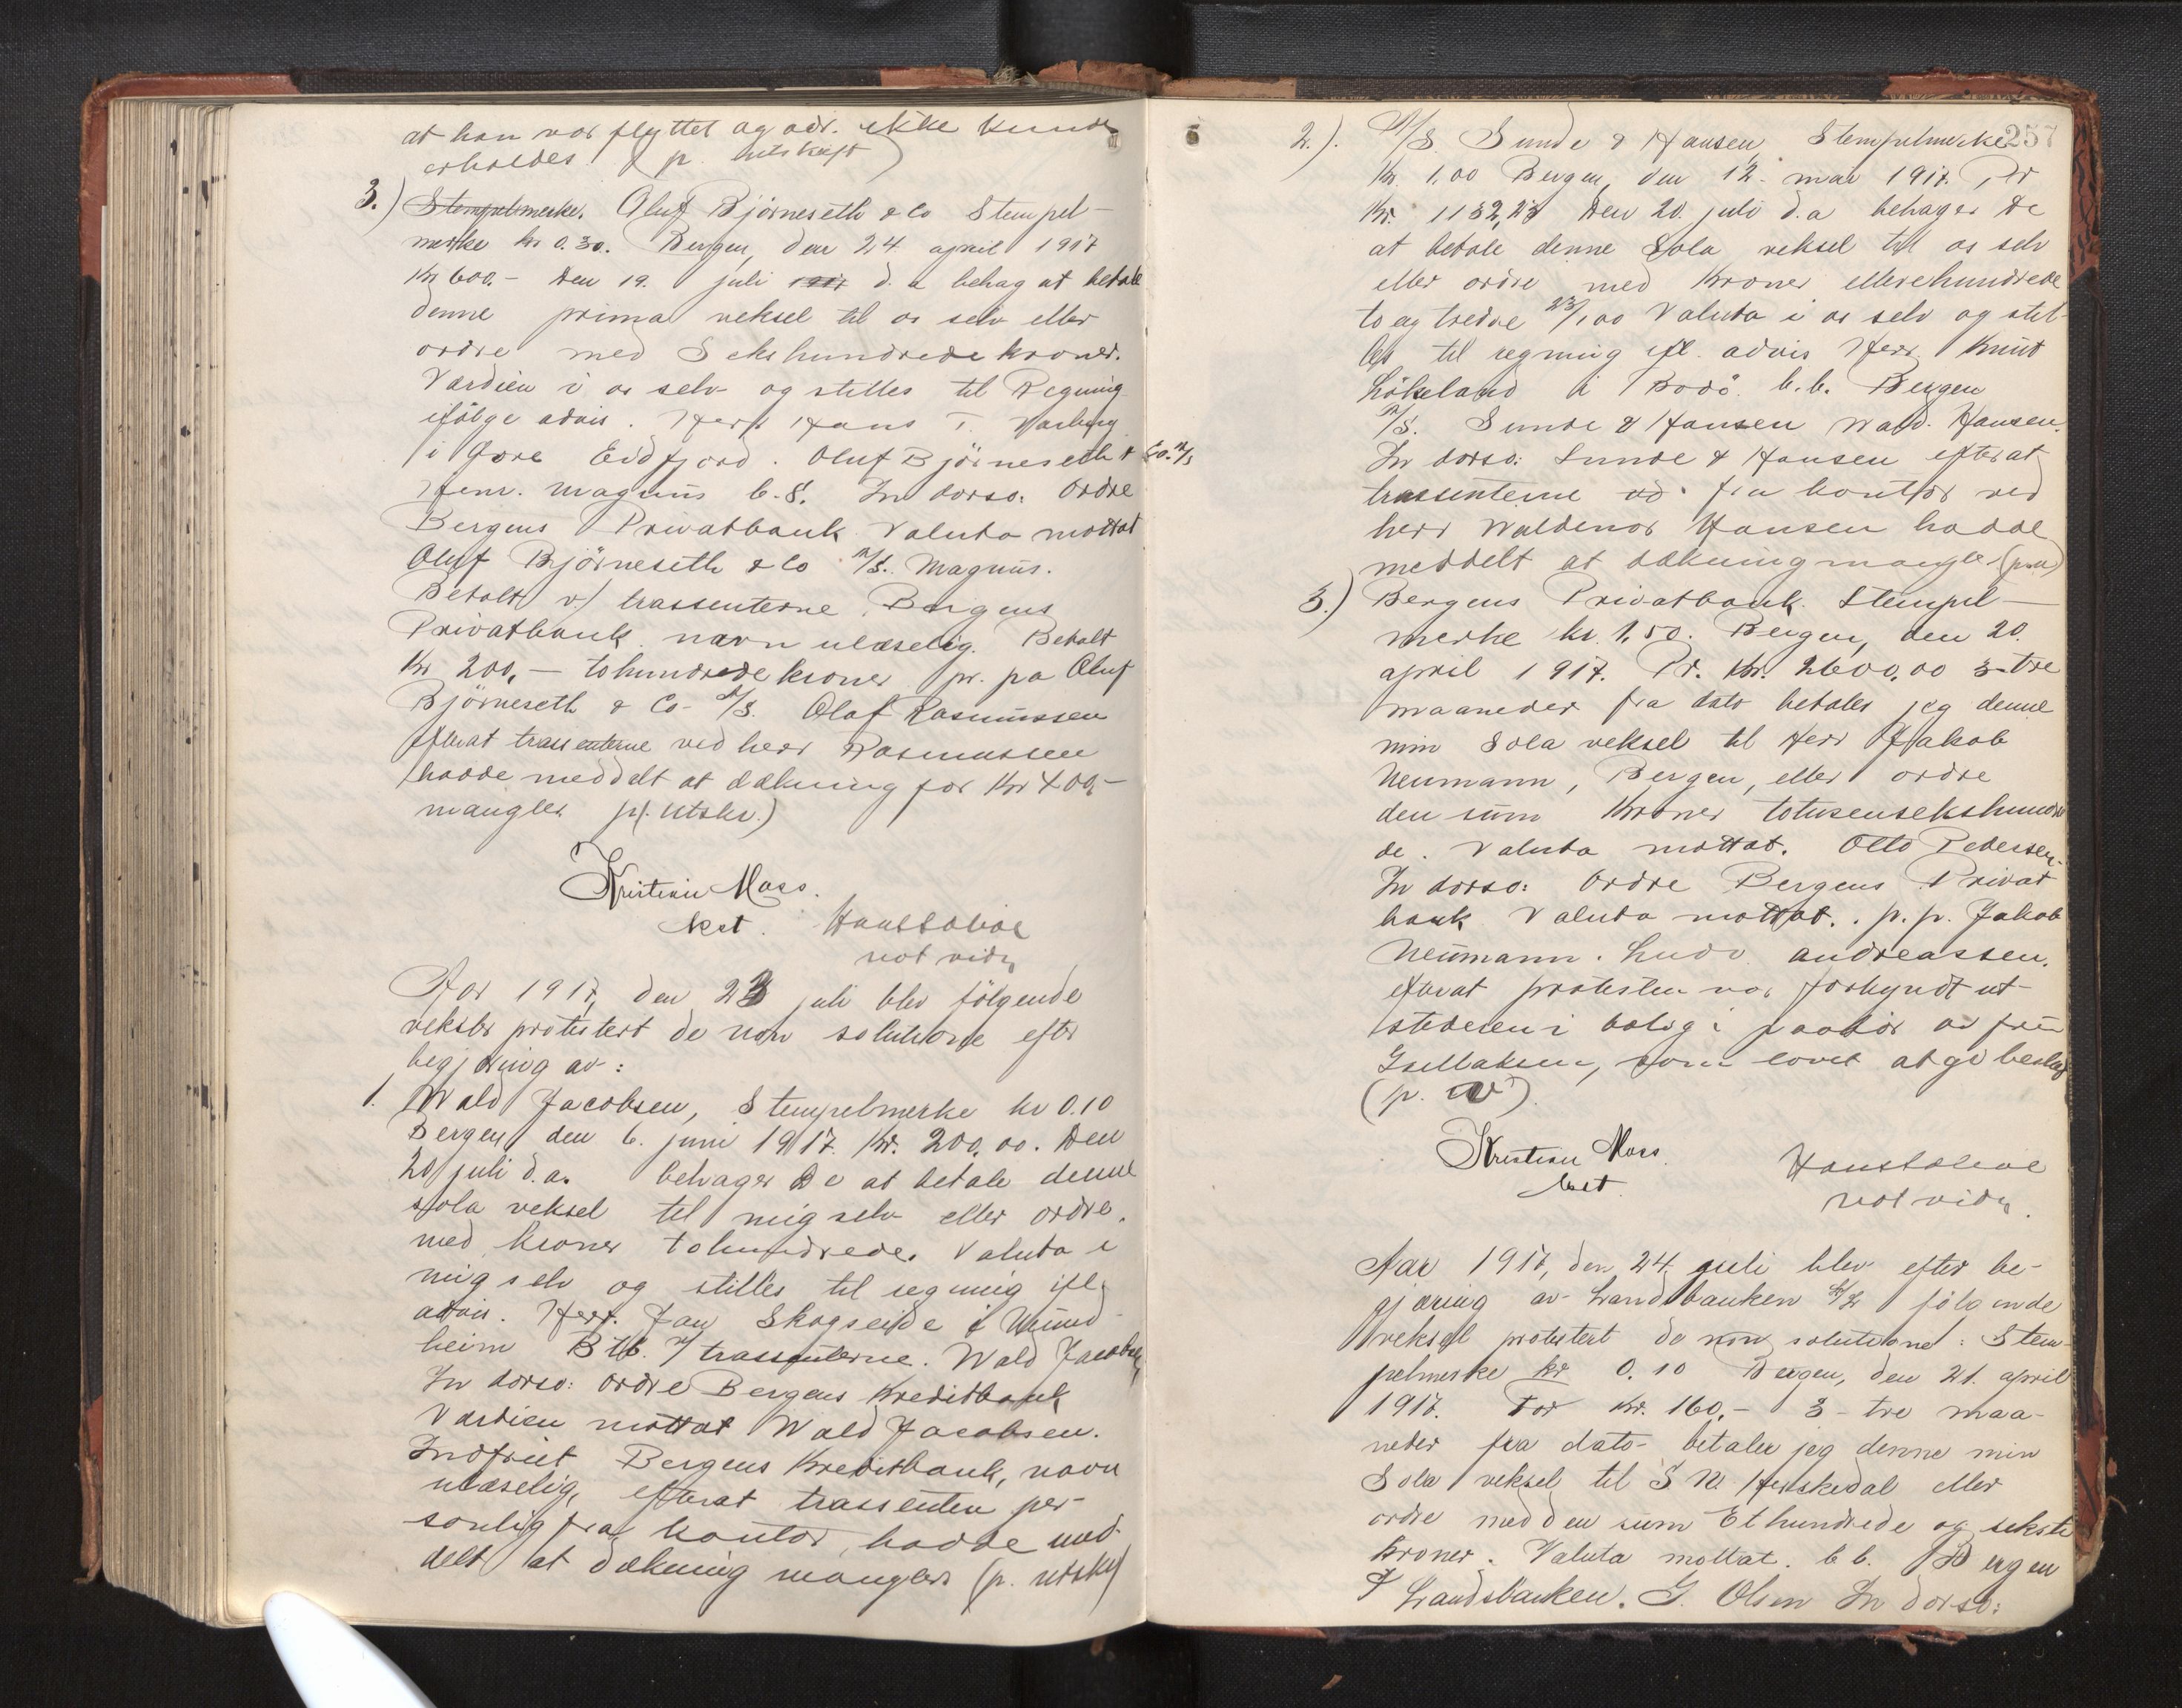 at han var flyttet og adr. ikke kunde
erholdes (p. utskrift)
3.) Stempelmerke. Oluf Björneseth & Co Stempel-
merke kr 0.30. Bergen, den 24 april 1917
Kr 600.- Den 19. juli 1917 d. a behag at betale
denne prima veksel til os selv eller
ordre med Sekshundrede kroner.
Værdien i os selv og stilles til Regning
ifölge advis. Herr Hans T.
i Övre Eidfjord. Oluf Björneseth & Co. A/S
Henr. Magnus b.S. In dorso: Ordre
Bergens Privatbank Valuta mottat
Oluf Björneseth & Co A/S. Magnus.
Betalt v/ trassenterne Bergens
Privatbank navn ulæselig. Betalt
Kr 200,- tohundrede kroner pr. pa Oluf
Björneseth & Co- A/S. Olaf Rasmussen
efterat trassenterne ved herr Rasmussen
hadde meddelt at dækning for Kr 400,-
mangler p. utskr.)
Kristian Mass.
kst.
not vidn
Aar 1917, den 23 juli blev fölgende
veksler protestert de non solutione efter
begjæring av:
1. Wald Jacobsen, Stempelmerke kr 0.10
Bergen den 6. juni 1917. Kr. 200,00. Den
20 juli d.a. behager De at betale denne
sola veksel til mig selv eller ordre.
med kroner tohundrede. Valuta i
mig selv og stilles til regning ifl.
advis. Herr. Jan Skogseide i
heim B tb. f/ trassenterne. Wald Jacobsen
In dorso: ordre Bergens Kreditbank
Værdien mottat Wald Jacobsen.
Indfriet Bergens Kreditbank, navn
ulæselig, efterat trassenten per-
sonlig fra kontor hadde med-
delt at dækning mangler (p. utskr)
257
2.). A/S. Sunde & Hansen, Stempelmerke
Kr. 1,00 Bergen, den 12. mai 1917. Pr
Kr. 1132,23 Den 20. juli d.a behager De
at betale denne Sola veksel til os selv
eller ordre med Kroner ellevehundrede
to og tredve 23/100 Valuta i os selv og stil-
les til regning ifl. advis Herr Knut
Lökeland i Bodö. b.b. Bergen
A/S. Sunde & Hansen Wald. Hansen.
In dorso: Sunde & Hansen efterat
trassenterne ad. fra kontor ved
herr Waldemar Hansen hadde
meddelt at dækning mangler (p.u)
3.) Bergens Privatbank. Stempel-
merke kr. 1,50. Bergen, den 20.
april 1917. Pr. Kr. 2600,00 3-tre
maaneder fra dato betaler jeg denne
min Sola veksel til Herr Jakob
Neumann, Bergen, eller ordre
den sum Kroner totusensekshundre
de. Valuta mottat. Otto Pedersen.
In dorso: Ordre Bergens Privat
bank Valuta mottat. p. p. Jakob
Neumann. Ludv. Andreassen.
efterat protesten var forkyndt ut-
stederen i bolig i paahör av fru
Isebaksen, som lovet at gi beskjed
(p. u)
Kristian Mass.
kst.
not vidn.
Aar 1917, den 24. juli blev efter be-
gjæring av Landsbanken A/S fölgende
veksel protestert de non solutione: Stem-
pelmerke kr 0.10 Bergen, den 21. april
1917. For Kr. 160.- 3-tre maa-
neder fra dato- betaler jeg denne min
Sola veksel til S N Herskedal eller
ordre med den sum Ethundrede og seksti
kroner. Valuta mottat. b b. Bergen
Landsbanken. G. Olsen In dorso: